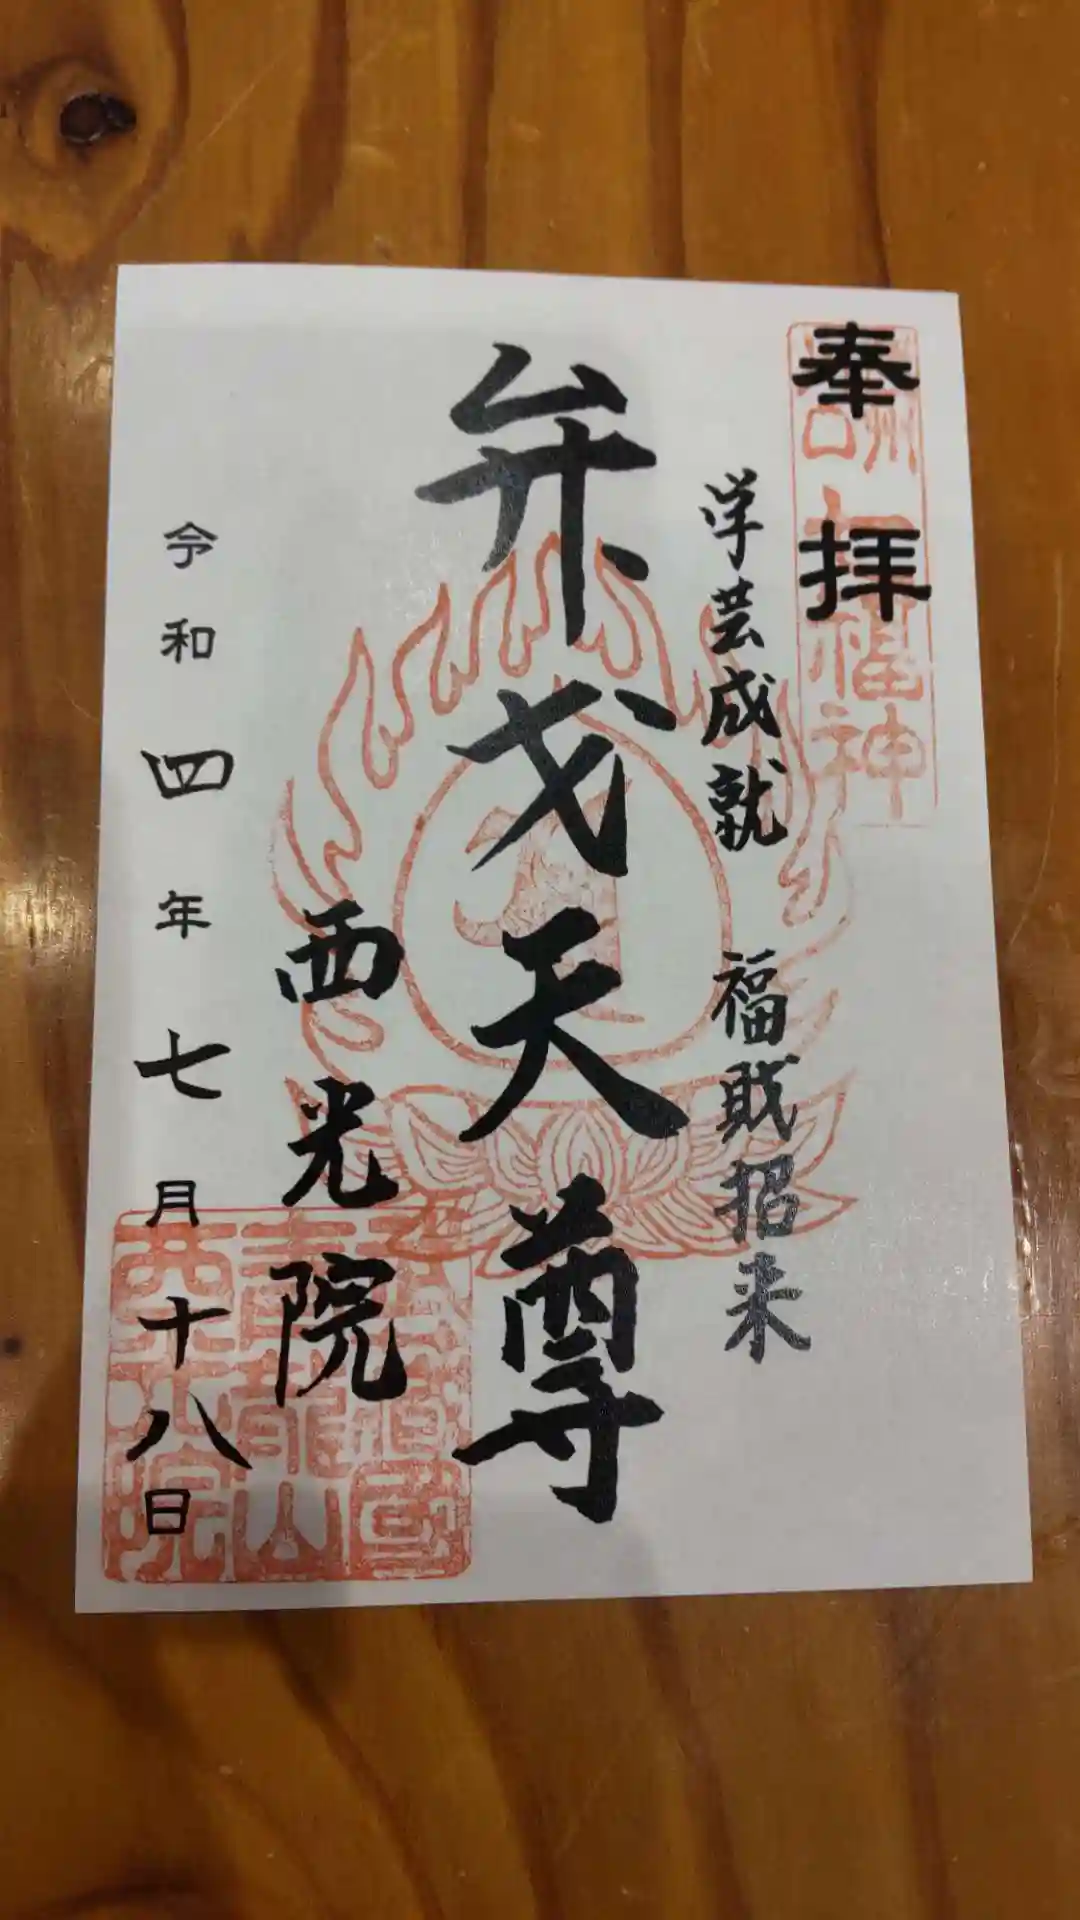 奉拝
学芸成就 福財招来
弁才天尊
西光院
令和四年七月十八日
福神